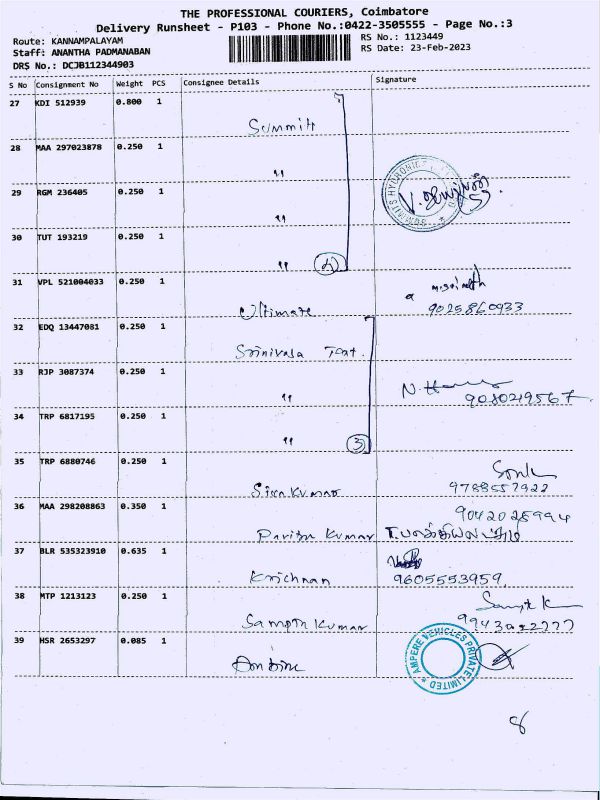 THE PROFESSIONAL COURIERS, Coimbatore
Delivery Runsheet - P103 - Phone No.:0422-3505555 - Page No.:3
Route: KANNAMPALAYAM
RS No.: 1123449
Staff: ANANTHA PADMANABAN
RS Date: 23-Feb-2023
DRS No.: DCJB112344903
S No Consignment No Weight PCS Consignee Details Signature
27 KDI 512939 0.800 1
Summit
28 MAA 297023878 0.250 1
"
29 RGM 236405 0.250 1
"
30 TUT 193219 0.250 1
" 4
31 VPL 521004033 0.250 1
Ultimate 9025860933
32 EDQ 13447081 0.250 1
Srinivasa Text.
33 RJP 3087374 0.250 1
" 9080219567
34 TRP 6817195 0.250 1
" 3
35 TRP 6880746 0.250 1
Siva Kumar 9788557922
36 MAA 298208863 0.350 1
9042025994
Kumar
37 BLR 535323910 0.635 1
Krichnan 9605553959
38 MTP 1213123 0.250 1
Sampth Kumar
39 HSR 2653297 0.085 1
AMPERE VEHICLES PRIVATE LIMITED
8